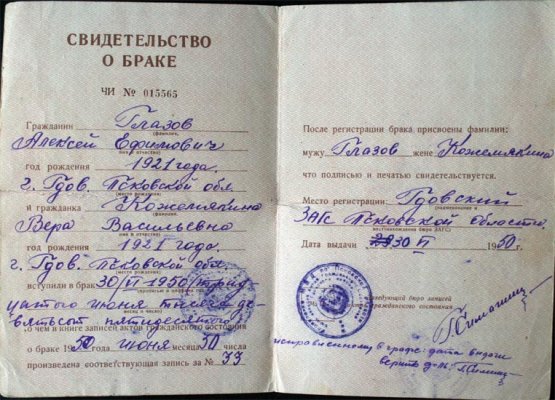 СВИДЕТЕЛЬСТВО
О БРАКЕ
ЧИ № 015565
Гражданин Глазов
(фамилия,
Алексей Ефимович
имя и отчество)
год рождения 1921 года.
г. Гдов. Псковской обл.
(место рождения)
и гражданка Кожемякина
(фамилия,
Вера Васильевна
имя и отчество)
год рождения 1921 года.
г. Гдов. Псковской обл.
(место рождения)
вступили в брак 30/VI-1950/трид
цатого июня тысяча де
вятьсот пятидесятого
о чем в книге записей актов гражданского состояния
о браке 1950 года июня месяца 30 числа
произведена соответствующая запись за № 33
После регистрации брака присвоены фамилии:
мужу Глазов жене Кожемякина
что подписью и печатью свидетельствуется.
Место регистрации: Гдовский
ЗАГС Псковской Области.
Дата выдачи 30 VI 1950 г.
Заведующий бюро записей
актов гражданского состояния
исправленному в графе: дата выдачи
верить